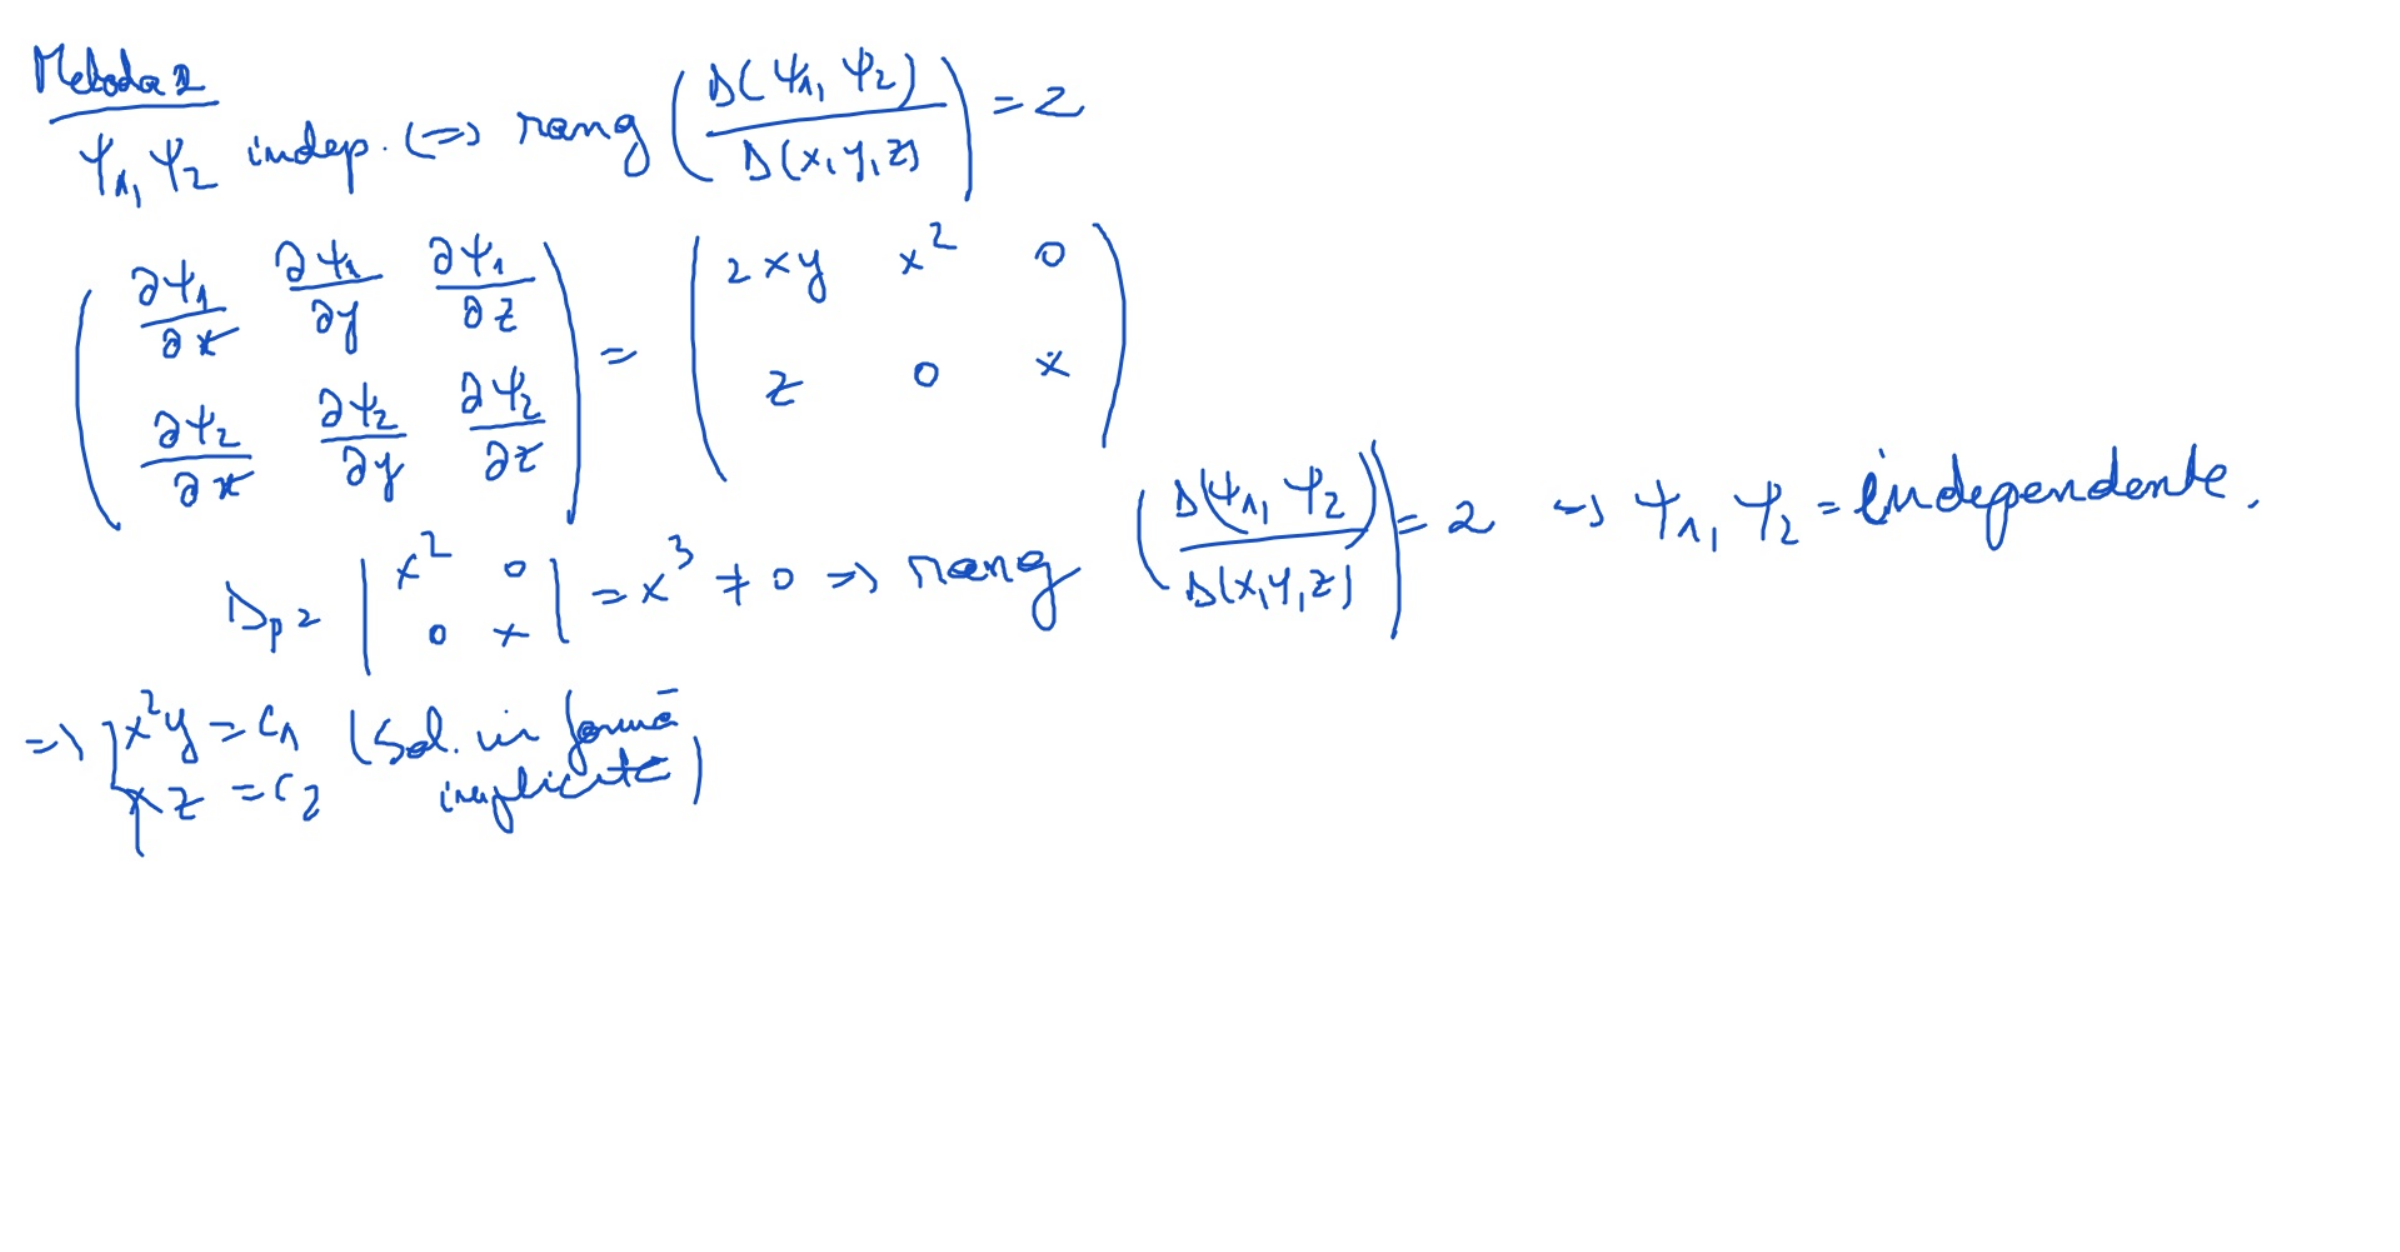 Metoda 2
Ψ1, Ψ2 indep. (=> rang (D(Ψ1, Ψ2) / D(x, y, z)) = 2
(∂Ψ1/∂x ∂Ψ1/∂y ∂Ψ1/∂z ; ∂Ψ2/∂x ∂Ψ2/∂y ∂Ψ2/∂z) = (2xy x² 0 ; z 0 x)
Dp = |x² 0 ; 0 x| = x³ ≠ 0 => rang (D(Ψ1, Ψ2) / D(x, y, z)) = 2 → Ψ1, Ψ2 = independente.
=> { x²y = C1 (Sol. in formă
xz = C2 implicită)